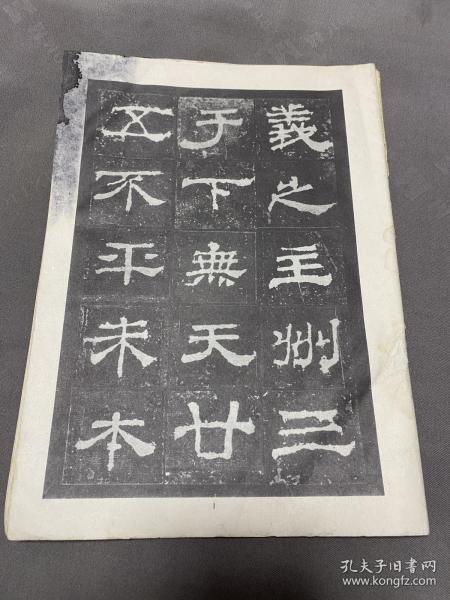 義之主州三
于下無天廿
五不平未本
1
孔夫子旧书网
www.kongfz.com